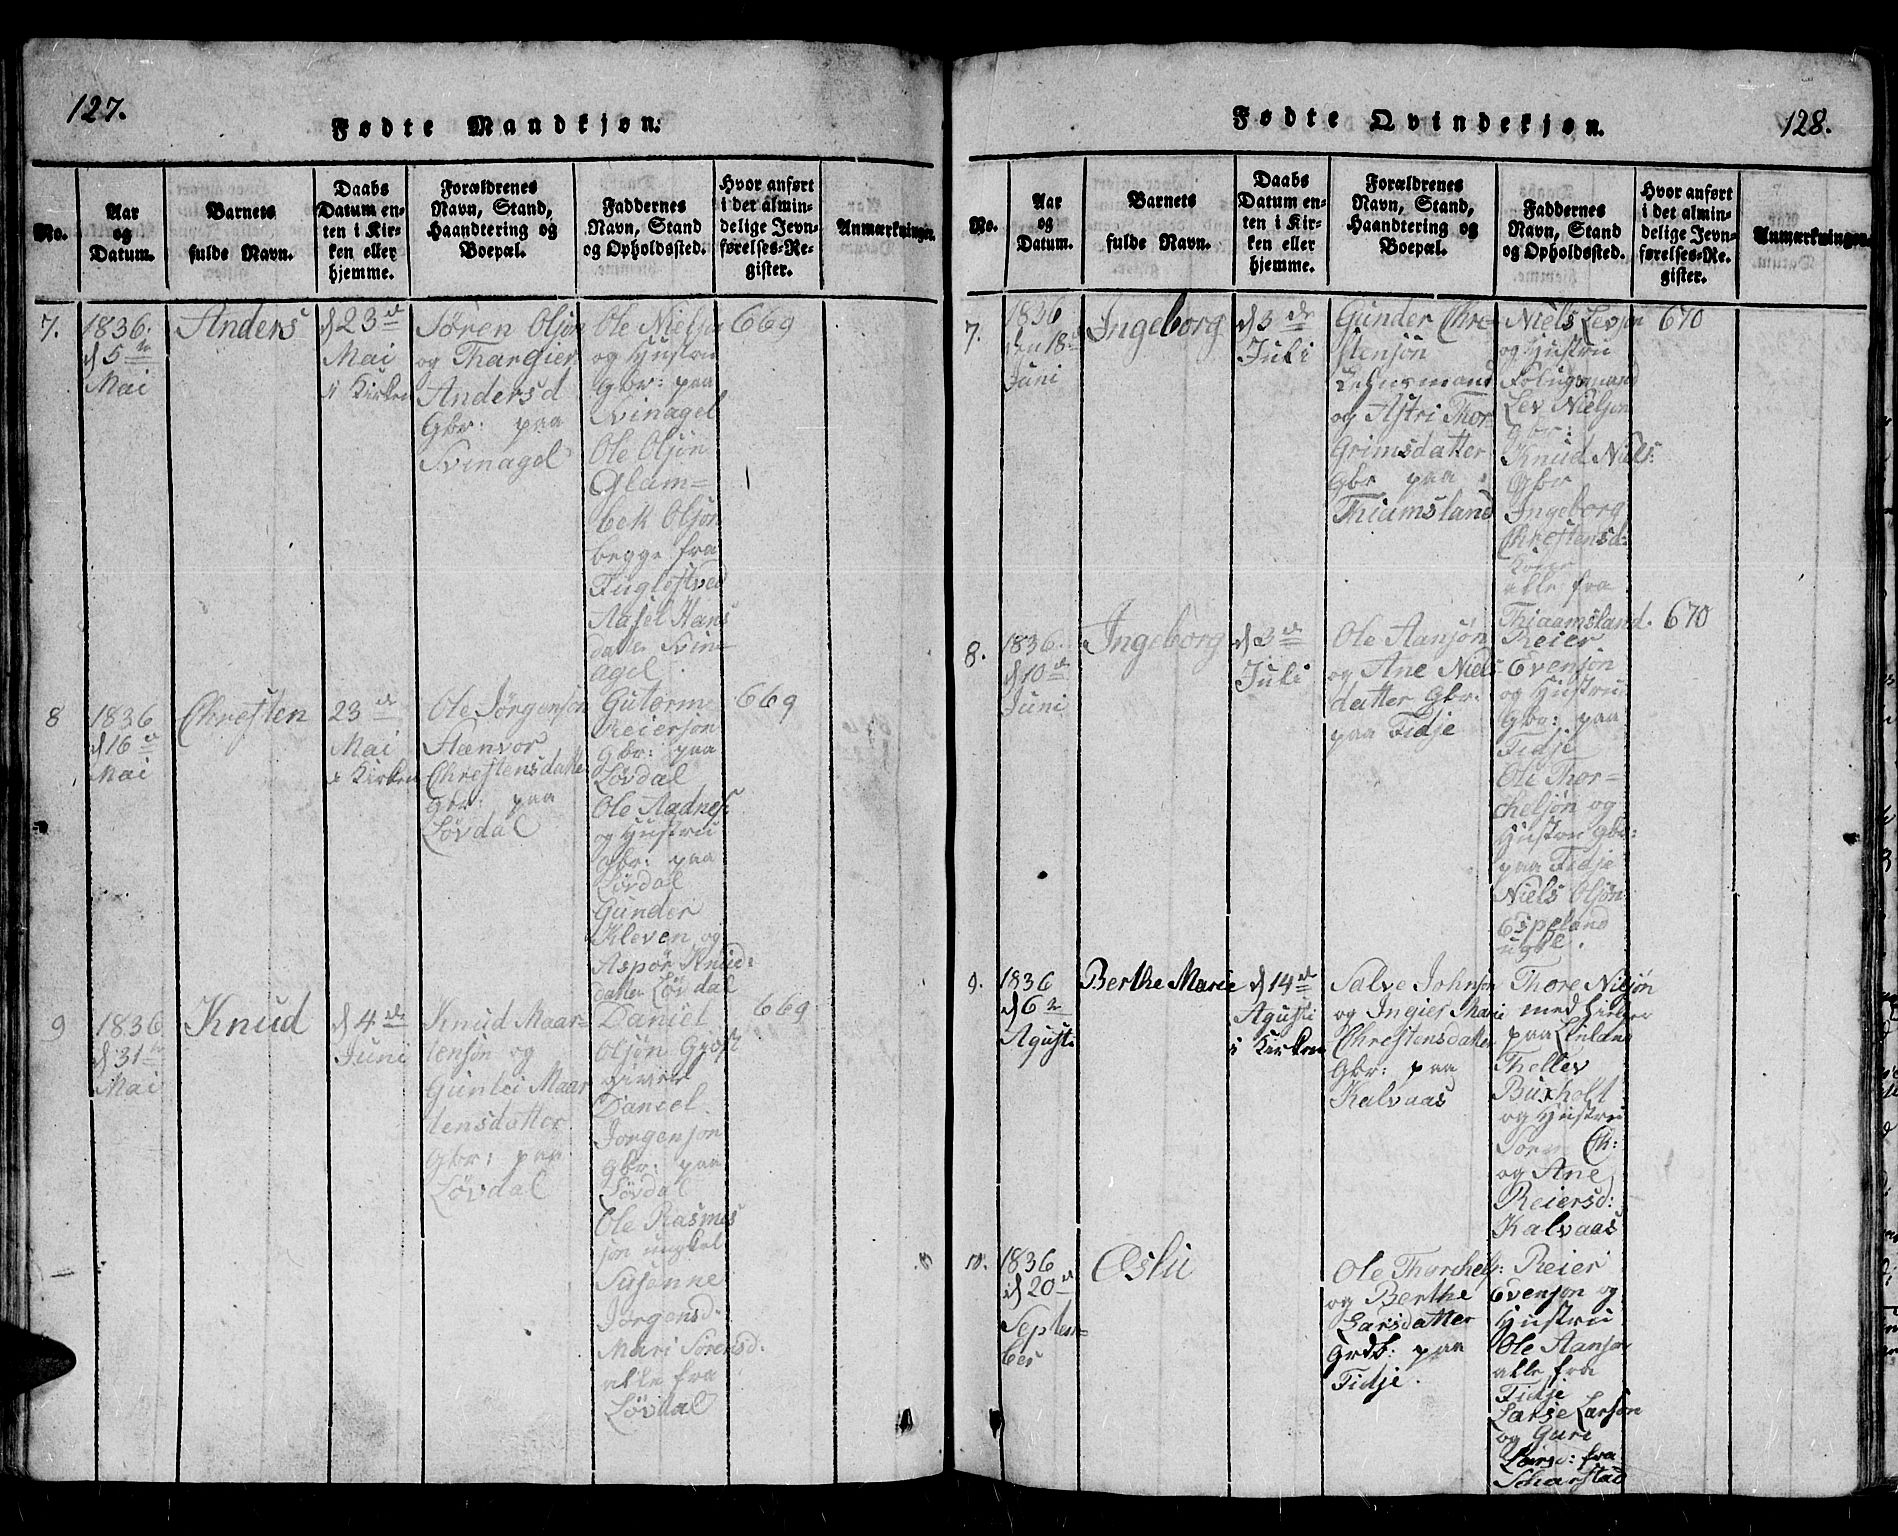 127.
Fødte Mandkjøn.
No.
Aar
og
Datum.
Barnets
fulde Navn.
Daabs
Datum en-
ten i Kir-
ken eller
hjemme.
Forældrenes
Navn, Stand,
Haandtering og
Boepæl.
Faddernes
Navn, Stand
og Opholdssted.
Hvor anført
i det almin-
delige Jevn-
førelses-Re-
gister.
Anmærkninger.
7.
1836.
d 5te
Mai
Anders
d 23de
Mai
i Kirken
Søren Olsøn
og Thargier
Andersd
Gbr: paa
Svinagel
Ole Nielsøn
og Hustru
Gbr: paa
Svinagel
Ole Olsøn
Glam=
bek Olsøn
begge fra
Fuglestved
Aasel Hans
datter Svin-
agel.
669
8
1836
d 16de
Mai
Chresten
23de
Mai
i Kirken
Ole Jørgensøn
Hænvor
Chrestensdatter
Gbr: paa
Løvdal
Guterm
Reiersøn
Gbr: paa
Løvdal
Ole Aadnes:
og Hustru
Gbr: paa
Løvdal
Gunder
Kleven og
Aspør Knud:
datter Løvdal
669
9
1836
d 31te
Mai
Knud
d 4de
Juni
Knud Maar-
tensøn og
Guntei Maar
tensdatter
Gbr: paa
Løvdal
Daniel
Olsøn Gjøst
giver
Daniel
Jørgensøn
Gbr: paa
Løvdal
Ole Rasmus
søn ungkel
Susanne
Jørgensd.
Mari Sørensd.
alle fra
Løvdal
669
128.
Fødte Qvindekjøn.
No.
Aar
og
Datum.
Barnets
fulde Navn.
Daabs
Datum en-
ten i Kir-
ken eller
hjemme.
Forældrenes
Navn, Stand,
Haandtering og
Boepæl.
Faddernes
Navn, Stand
og Opholdssted.
Hvor anført
i det almin-
delige Jevn-
førelses-Re-
gister.
Anmærkninger.
7.
1836
den 18d
Juni
Ingeborg
d 3de
Juli
Gunder Chre-
stensøn
Lehnsmand
og Astri Thor-
Grimsdatter
Gbr paa
Thiamsland
Niels Levsøn
og Hustru
Folugmand
Lev Nielsøn
Gbr:
Knud Niels:
Gbr
Ingeborg
Chrestensd:
alle fra
Thiaamsland.
670
8.
1836.
d 10d
Juni
Ingeborg
d 3de
Juli
Ole Aansøn
og Ane Niels
datter Gbr:
paa Tidje
Reier
Evensøn
og Hustru
Gbr: paa
Tidje
Ole Thor=
chelsøn og
Hustru gbr:
paa Tidje
Niels Olsøn
Espeland
ugkl.
670
9.
1836
d 6te
Agust.
Berthe Marie
d 14de
Agusti
i Kirken
Salve Johnsøn
og Ingier Mari
Chrestensdatter
Gbr: paa
Kalvaas
Thore Nilsøn
med
paa Linland
Thellev
Buxholt
og Hustru
Søren Ch:
og Ane
Reiersd:
Kalvaas
10.
1836
d 20de
Septem-
ber
Oslu
Ole Thorchels:
og Berthe
Larsdatter
Grdb: paa
Tidje.
Reier
Evensøn og
Hustru
Ole Aansøn
alle fra
Tidje
Larse Larsøn
og Guri
Larsd: fra
Scharstad